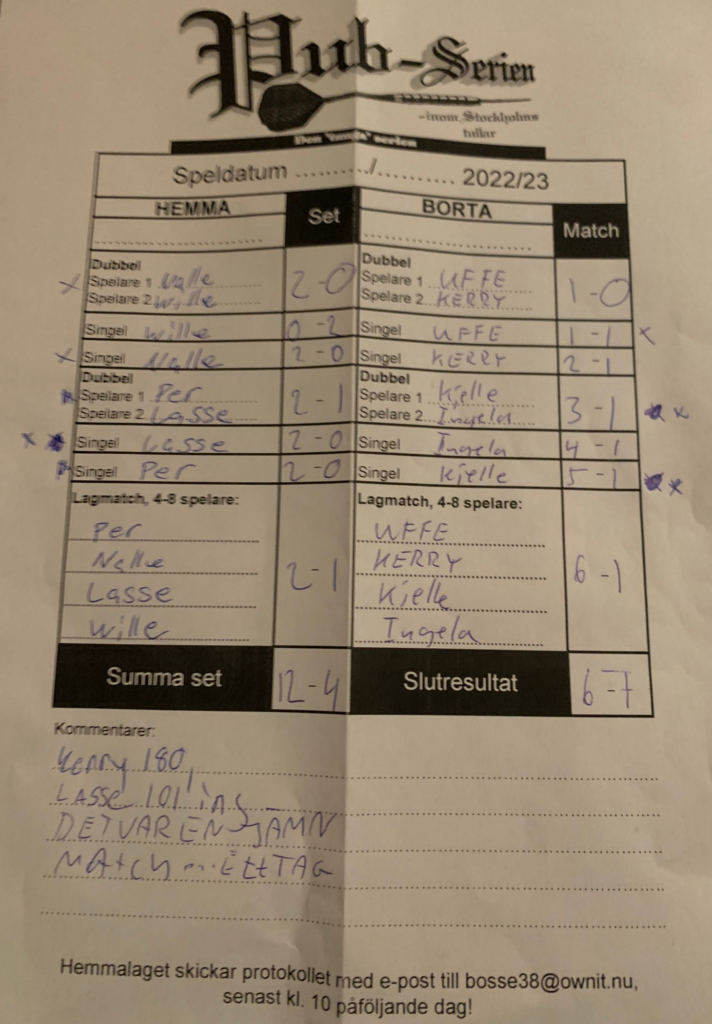 Pub-Serien
-inom Stockholms
tullar
Speldatum ........./........... 2022/23
HEMMA Set BORTA Match
Dubbel Dubbel
Spelare 1 Nalle 2-0 Spelare 1 UFFE 1-0
Spelare 2 Wille Spelare 2 KERRY
Singel Wille 0-2 Singel UFFE 1-1 x
x Singel Nalle 2-0 Singel KERRY 2-1
Dubbel Dubbel
Spelare 1 Per 2-1 Spelare 1 Kjelle 3-1 x
Spelare 2 Lasse Spelare 2 Ingela
x Singel Lasse 2-0 Singel Ingela 4-1
Singel Per 2-0 Singel Kjelle 5-1 x
Lagmatch, 4-8 spelare: Lagmatch, 4-8 spelare:
Per UFFE
Nalle 2-1 KERRY 6-1
Lasse Kjelle
Wille Ingela
Summa set 12-4 Slutresultat 6-7
Kommentarer:
Kerry 180,
LASSE 101 ing
DET VAR EN JÄMN
MAtCH Ett TAG
Hemmalaget skickar protokollet med e-post till bosse38@ownit.nu,
senast kl. 10 påföljande dag!